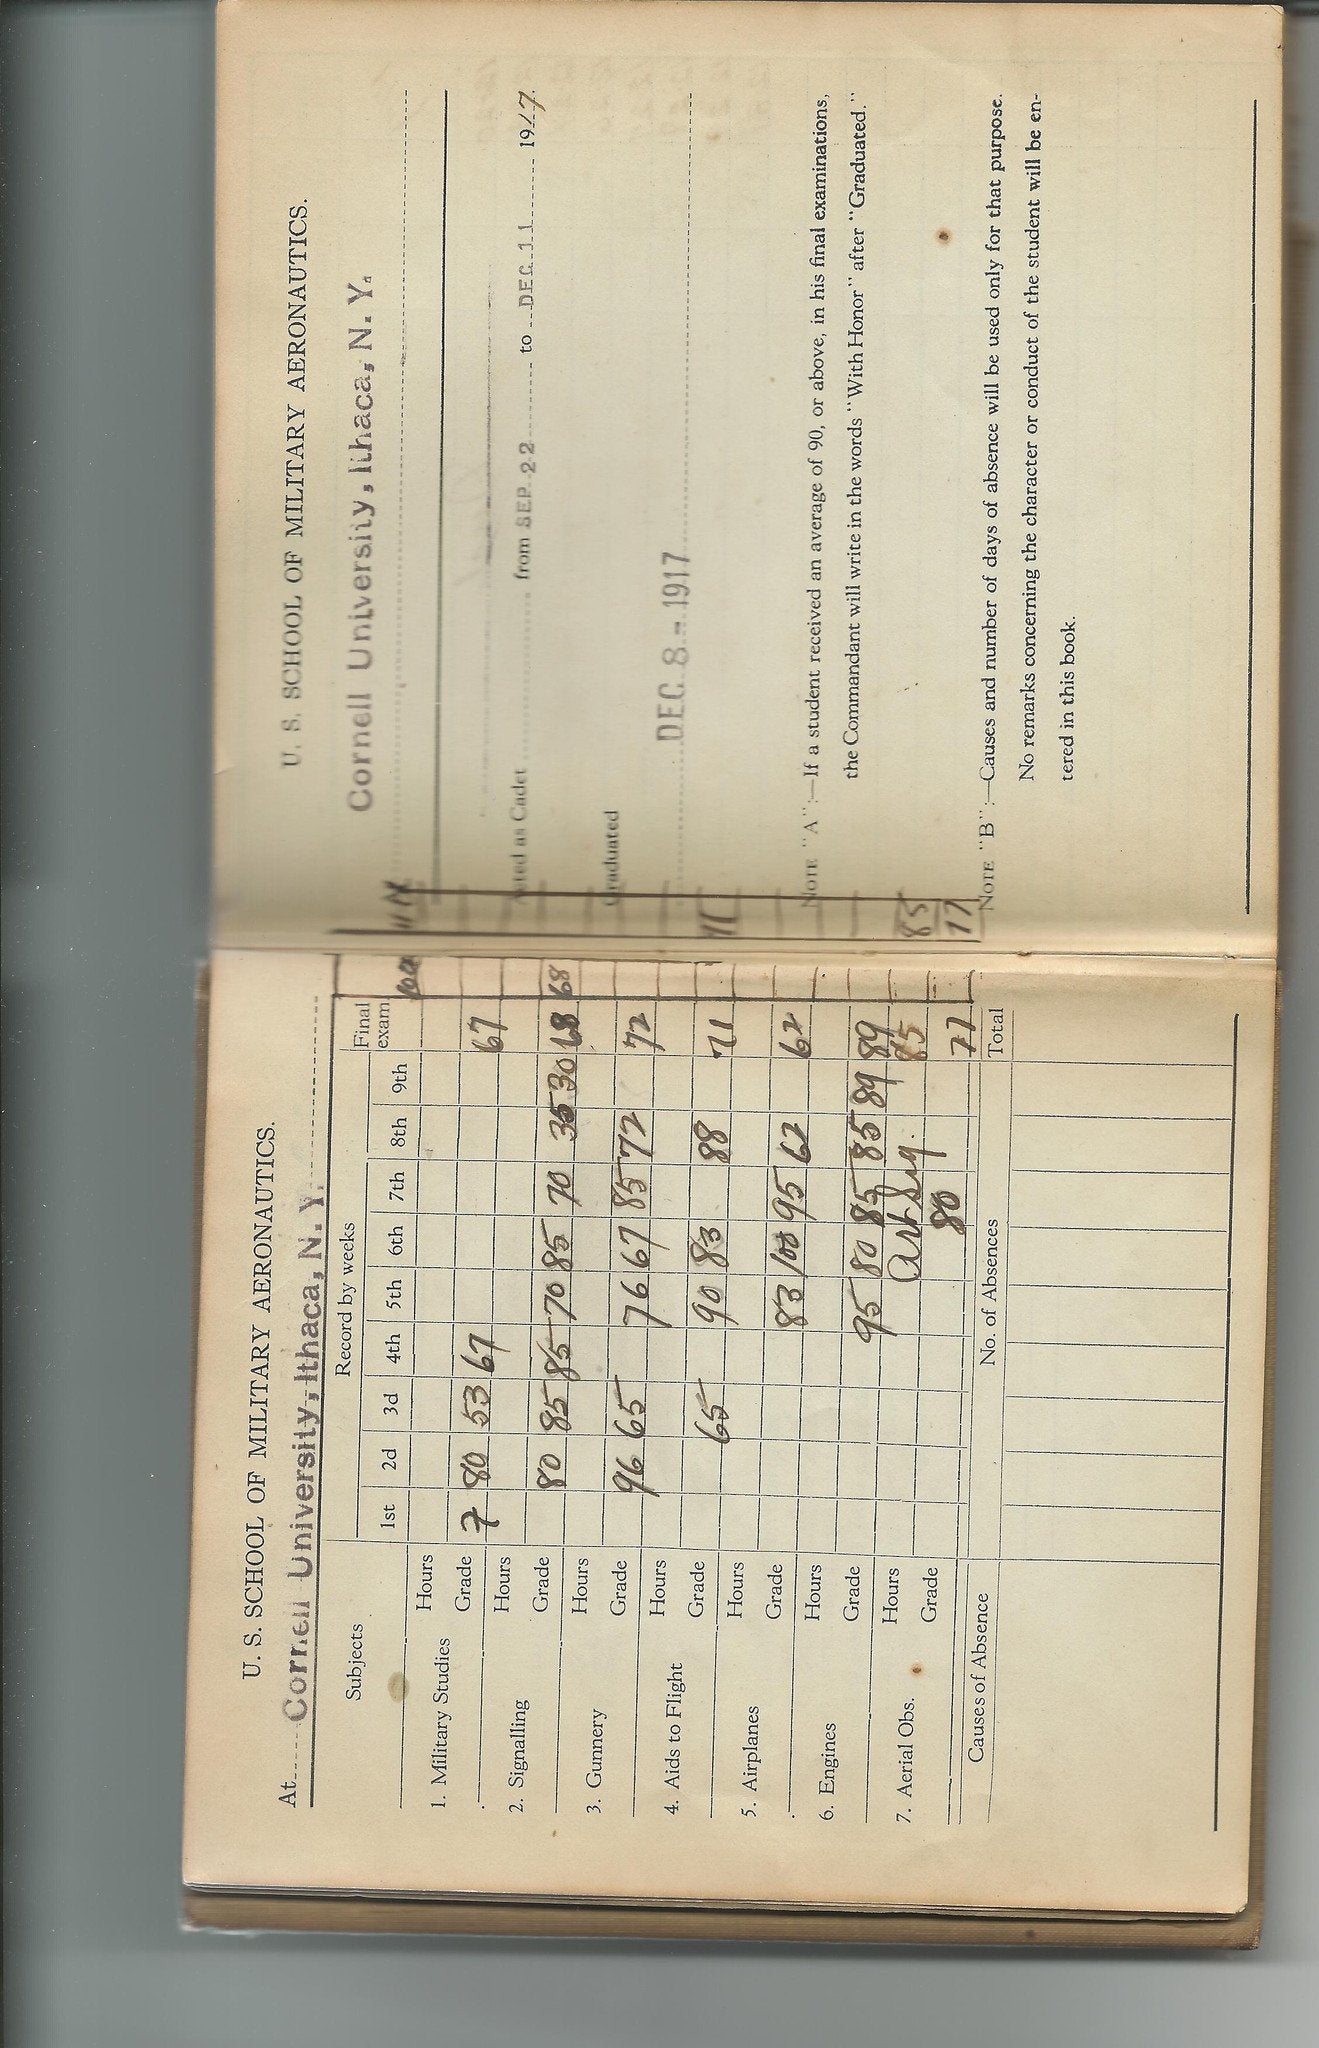 U. S. SCHOOL OF MILITARY AERONAUTICS.
At Cornell University, Ithaca, N. Y.
Subjects Record by weeks Final exam
1st 2d 3d 4th 5th 6th 7th 8th 9th
1. Military Studies Hours
Grade 7 80 53 67 67
2. Signalling Hours
Grade 80 85 85 70 85 70 35 30 68 68
3. Gunnery Hours
Grade 96 65 76 67 85 72 72
4. Aids to Flight Hours
Grade 65 90 83 88 71
5. Airplanes Hours
Grade 83 100 95 62 62
6. Engines Hours
Grade 95 80 85 85 89 89
7. Aerial Obs. Hours Art Sig. 85 85
Grade 80 77 77
Causes of Absence No. of Absences Total
U. S. SCHOOL OF MILITARY AERONAUTICS.
Cornell University, Ithaca, N. Y.
Acted as Cadet from SEP 22 to DEC 11 1917
Graduated
DEC 8 - 1917
NOTE "A":—If a student received an average of 90, or above, in his final examinations,
the Commandant will write in the words "With Honor" after "Graduated."
NOTE "B":—Causes and number of days of absence will be used only for that purpose.
No remarks concerning the character or conduct of the student will be en-
tered in this book.